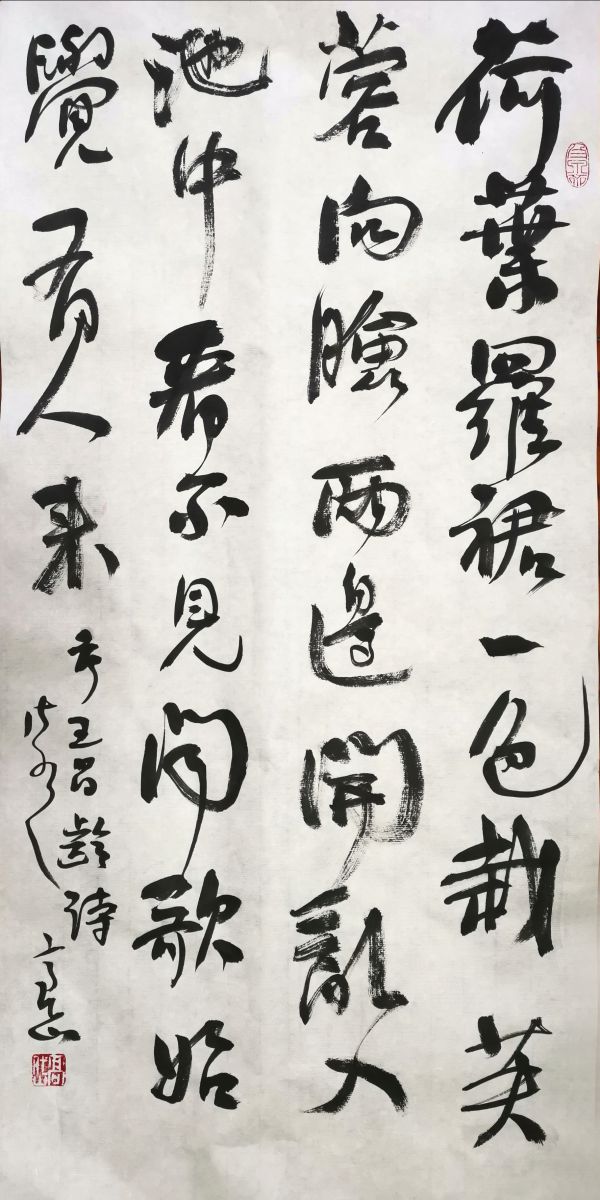 荷葉羅裙一色栽芙
蓉向臉兩邊開亂入
池中看不見聞歌始
覺有人來
王昌齡詩